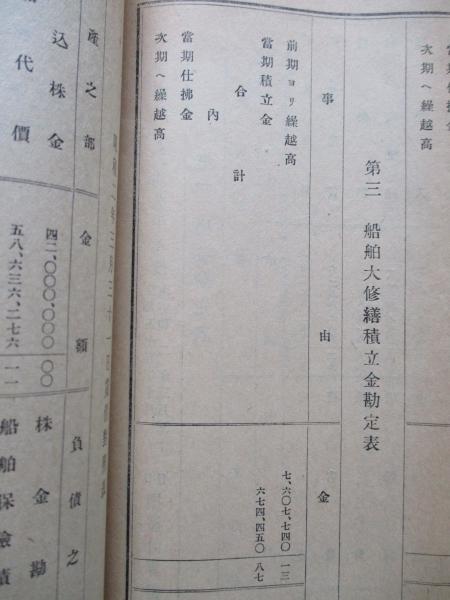 次期ヘ繰越高
第三 船舶大修繕積立金勘定表
事由 金
前期ヨリ繰越高 七、六〇七、七四〇 一三
當期積立金 六七四、四五〇 八七
合計
內
當期仕拂金
次期ヘ繰越高
產之部 金額 負債之
込株金 四二、〇〇〇、〇〇〇 〇〇 株金勘
代價 五八、六三六、二七六 一一 船舶保險積